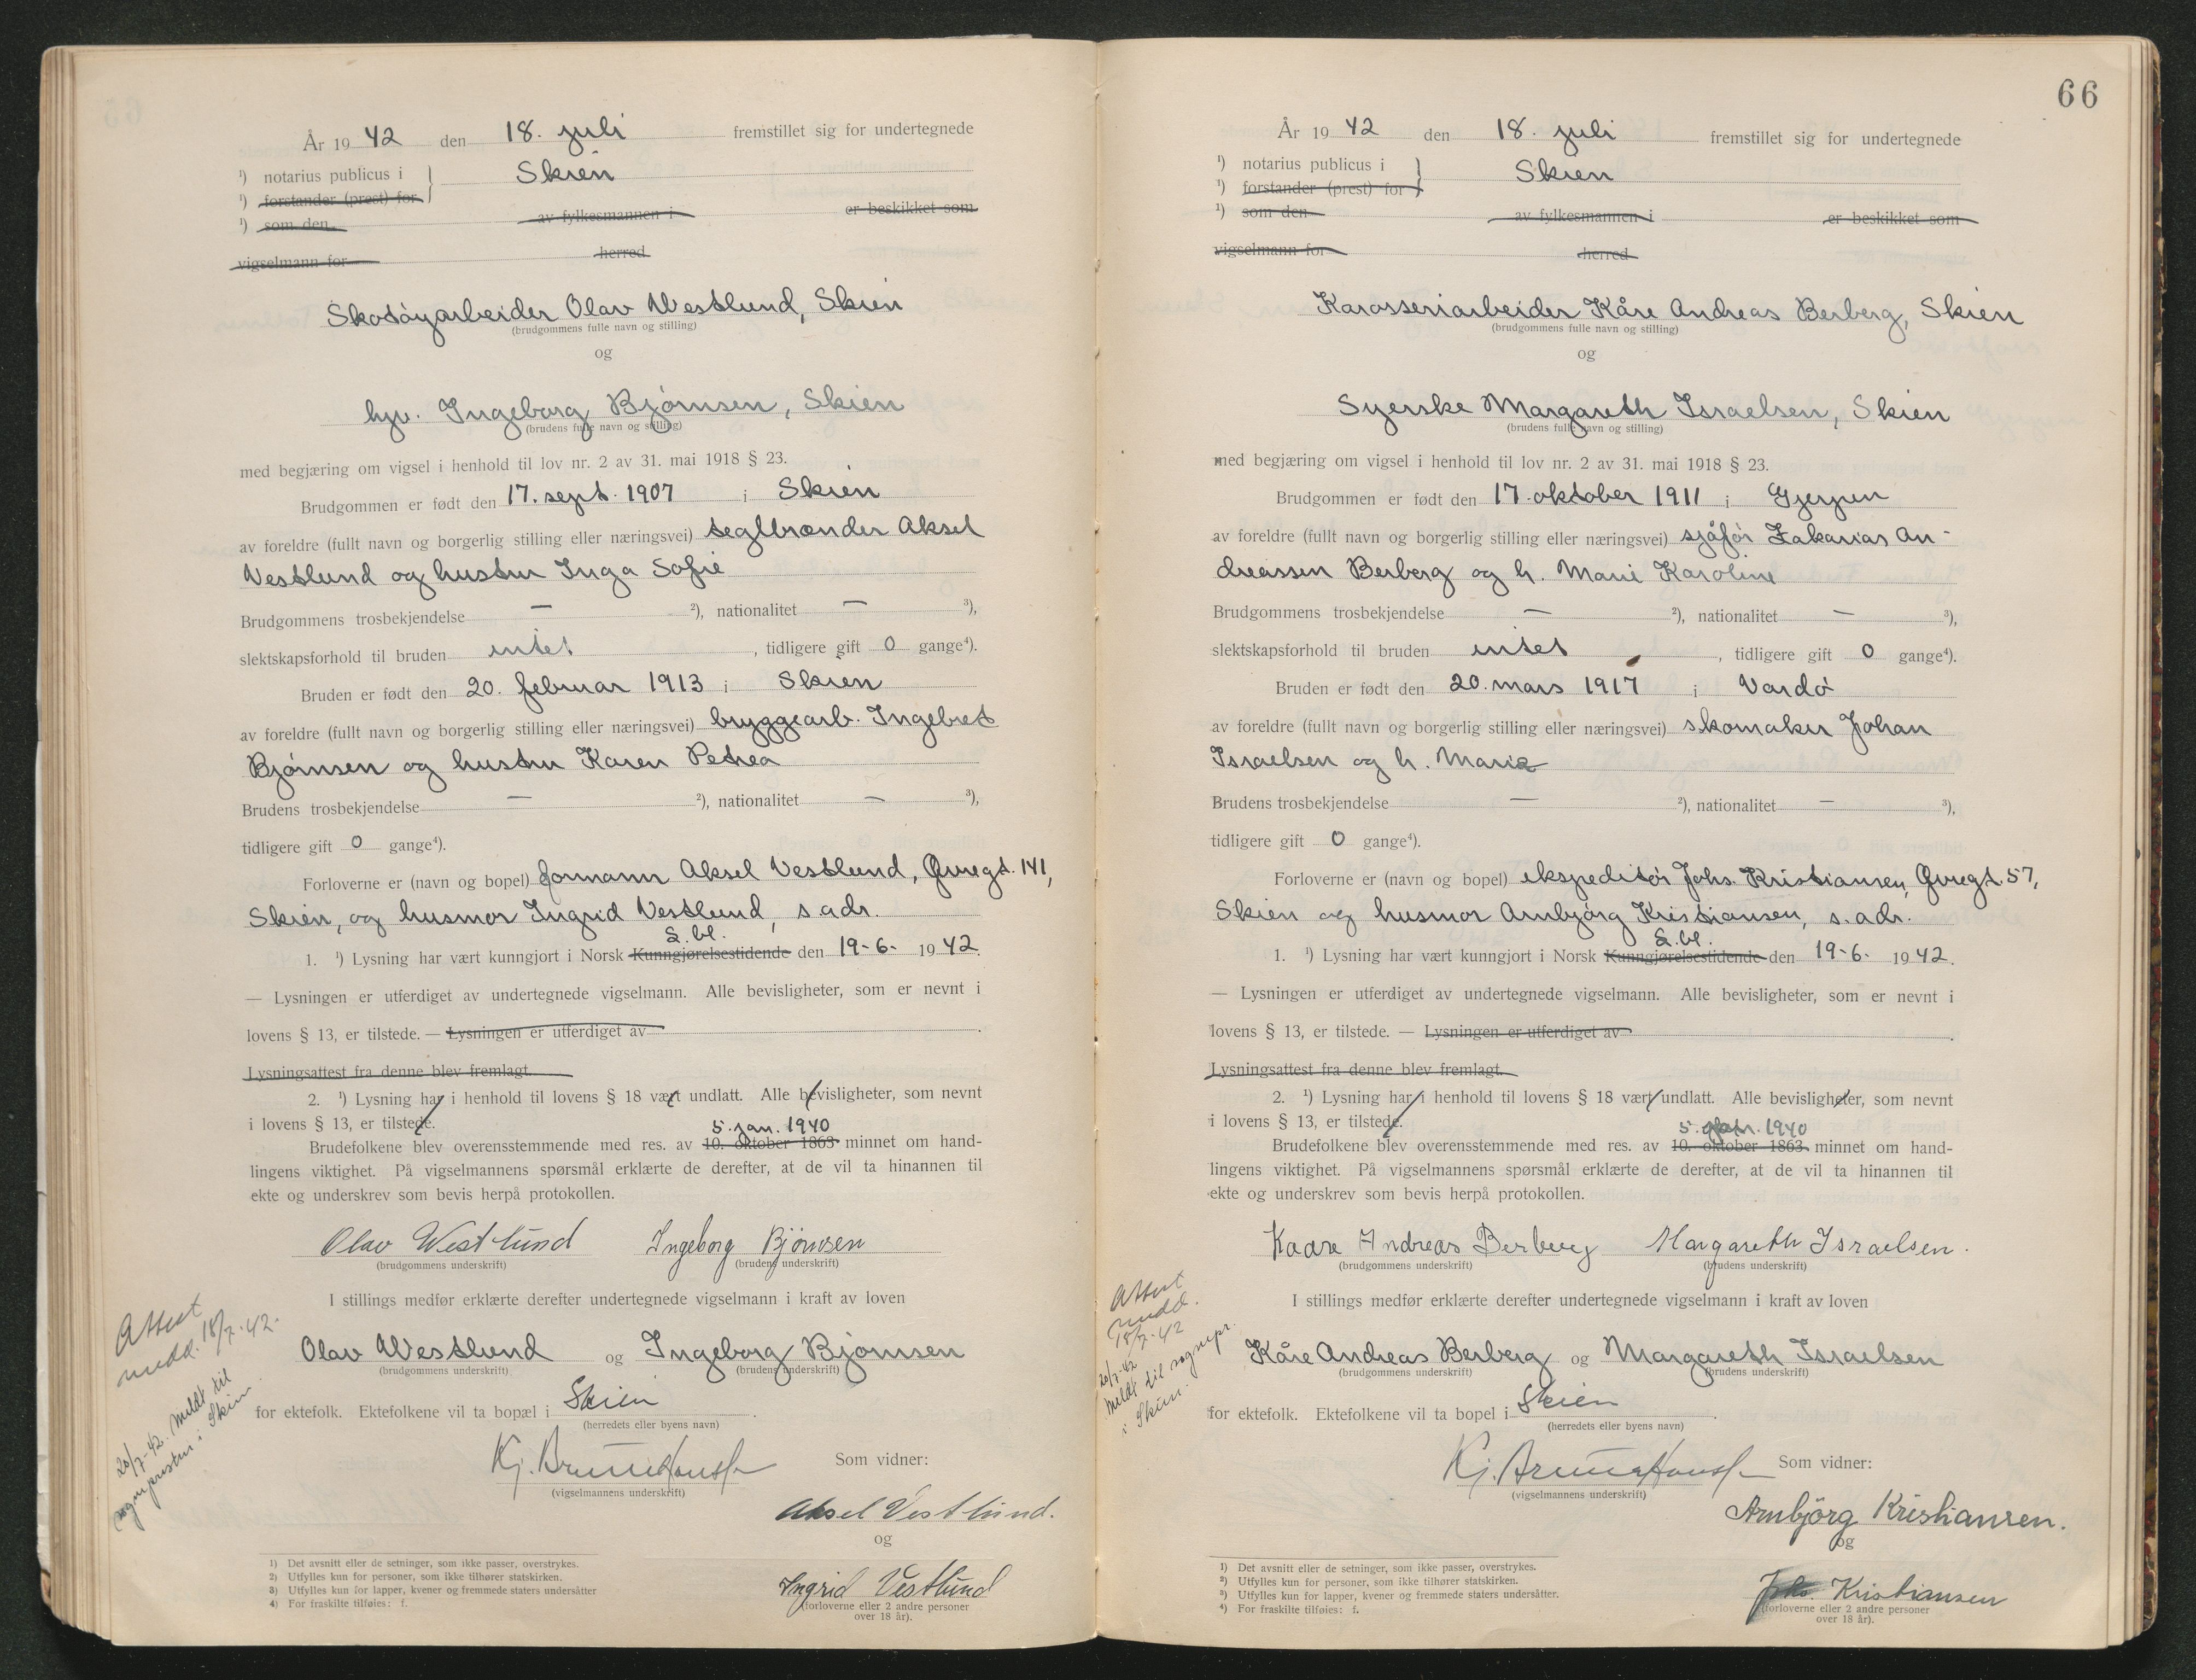 År 1942 den 18. juli fremstillet sig for undertegnede
¹) notarius publicus i } Skien
¹) forstander (prest) for
¹) som den av fylkesmannen i er beskikket som
vigselmann for herred
Skotøyarbeider Olav Westlund, Skien
(brudgommens fulle navn og stilling)
og
hjv. Ingeborg Bjørnsen, Skien
(brudens fulle navn og stilling)
med begjæring om vigsel i henhold til lov nr. 2 av 31. mai 1918 § 23.
Brudgommen er født den 17. sept. 1907 i Skien
av foreldre (fullt navn og borgerlig stilling eller næringsvei) teglbrænder Aksel
Vestlund og hustru Inga Sofie
Brudgommens trosbekjendelse — ²), nationalitet — ³),
slektskapsforhold til bruden intet, tidligere gift 0 gange⁴).
Bruden er født den 20. februar 1913 i Skien
av foreldre (fullt navn og borgerlig stilling eller næringsvei) bryggearb. Ingebret
Bjørnsen og hustru Karen Petrea
Brudens trosbekjendelse — ²), nationalitet — ³),
tidligere gift 0 gange⁴).
Forloverne er (navn og bopel) formann Aksel Vestlund, Øvregt. 141,
Skien, og husmor Ingrid Vestlund, s. adr.
S. bl.
1. ¹) Lysning har vært kunngjort i Norsk Kunngjørelsestidende den 19-6- 1942.
— Lysningen er utferdiget av undertegnede vigselmann. Alle bevisligheter, som er nevnt i
lovens § 13, er tilstede. — Lysningen er utferdiget av .
Lysningsattest fra denne blev fremlagt.
2. ¹) Lysning har i henhold til lovens § 18 vært undlatt. Alle bevisligheter, som nevnt
i lovens § 13, er tilstede.
5. jan. 1940
Brudefolkene blev overensstemmende med res. av 10. oktober 1863 minnet om hand-
lingens viktighet. På vigselmannens spørsmål erklærte de derefter, at de vil ta hinannen til
ekte og underskrev som bevis herpå protokollen.
Olav Westlund Ingeborg Bjørnsen
(brudgommens underskrift) (brudens underskrift)
I stillings medfør erklærte derefter undertegnede vigselmann i kraft av loven
Olav Westlund og Ingeborg Bjørnsen
(brudgommens underskrift) (brudens underskrift)
for ektefolk. Ektefolkene vil ta bopæl i Skien.
(herredets eller byens navn)
Kj. Som vidner:
(vigselmannens underskrift)
Aksel Vestlund.
og
Ingrid Vestlund
(forloverne eller 2 andre personer
over 18 år).
Attest
medd. 18/7-42.
20/7-42. Meldt til
sognepresten i Skien.
1) Det avsnitt eller de setninger, som ikke passer, overstrykes.
2) Utfylles kun for personer, som ikke tilhører statskirken.
3) Utfylles kun for lapper, kvener og fremmede staters undersåtter
4) For fraskilte tilføies: f.
66
År 1942 den 18. juli fremstillet sig for undertegnede
¹) notarius publicus i } Skien
¹) forstander (prest) for
¹) som den av fylkesmannen i er beskikket som
vigselmann for herred
Karosseriarbeider Kåre Andreas Berberg, Skien
(brudgommens fulle navn og stilling)
og
Syerske Margareth Israelsen, Skien
(brudens fulle navn og stilling)
med begjæring om vigsel i henhold til lov nr. 2 av 31. mai 1918 § 23.
Brudgommen er født den 17. oktober 1911 i Gjerpen
av foreldre (fullt navn og borgerlig stilling eller næringsvei) sjåfør Zakarias An-
dreassen Berberg og h. Marie Karoline
Brudgommens trosbekjendelse — ²), nationalitet — ³),
slektskapsforhold til bruden intet, tidligere gift 0 gange⁴).
Bruden er født den 20. mars 1917 i Vardø
av foreldre (fullt navn og borgerlig stilling eller næringsvei) skomaker Johan
Israelsen og h. Maria
Brudens trosbekjendelse — ²), nationalitet — ³),
tidligere gift 0 gange⁴).
Forloverne er (navn og bopel) ekspeditør Johs. Kristiansen, Øvregt. 57,
Skien og husmor Arnbjørg Kristiansen, s. adr.
S. bl.
1. ¹) Lysning har vært kunngjort i Norsk Kunngjørelsestidende den 19-6- 1942.
— Lysningen er utferdiget av undertegnede vigselmann. Alle bevisligheter, som er nevnt i
lovens § 13, er tilstede. — Lysningen er utferdiget av .
Lysningsattest fra denne blev fremlagt.
2. ¹) Lysning har i henhold til lovens § 18 vært undlatt. Alle bevisligheter, som nevnt
i lovens § 13, er tilstede.
5. 1940
Brudefolkene blev overensstemmende med res. av 10. oktober 1863 minnet om hand-
lingens viktighet. På vigselmannens spørsmål erklærte de derefter, at de vil ta hinannen til
ekte og underskrev som bevis herpå protokollen.
Kaare Andreas Berberg Margareth Israelsen.
(brudgommens underskrift) (brudens underskrift)
I stillings medfør erklærte derefter undertegnede vigselmann i kraft av loven
Kåre Andreas Berberg og Margareth Israelsen
(brudgommens underskrift) (brudens underskrift)
for ektefolk. Ektefolkene vil ta bopel i Skien.
(herredets eller byens navn)
Kj. Som vidner:
(vigselmannens underskrift)
Arnbjörg Kristiansen.
og
Johs. Kristiansen
(forloverne eller 2 andre personer
over 18 år).
Attest
medd.
18/7-42
20/7-42
Meldt til sognepr.
i Skien.
¹) Det avsnitt eller de setninger, som ikke passer, overstrykes.
²) Utfylles kun for personer, som ikke tilhører statskirken.
³) Utfylles kun for lapper, kvener og fremmede staters undersåtter.
⁴) For fraskilte tilføies: f.